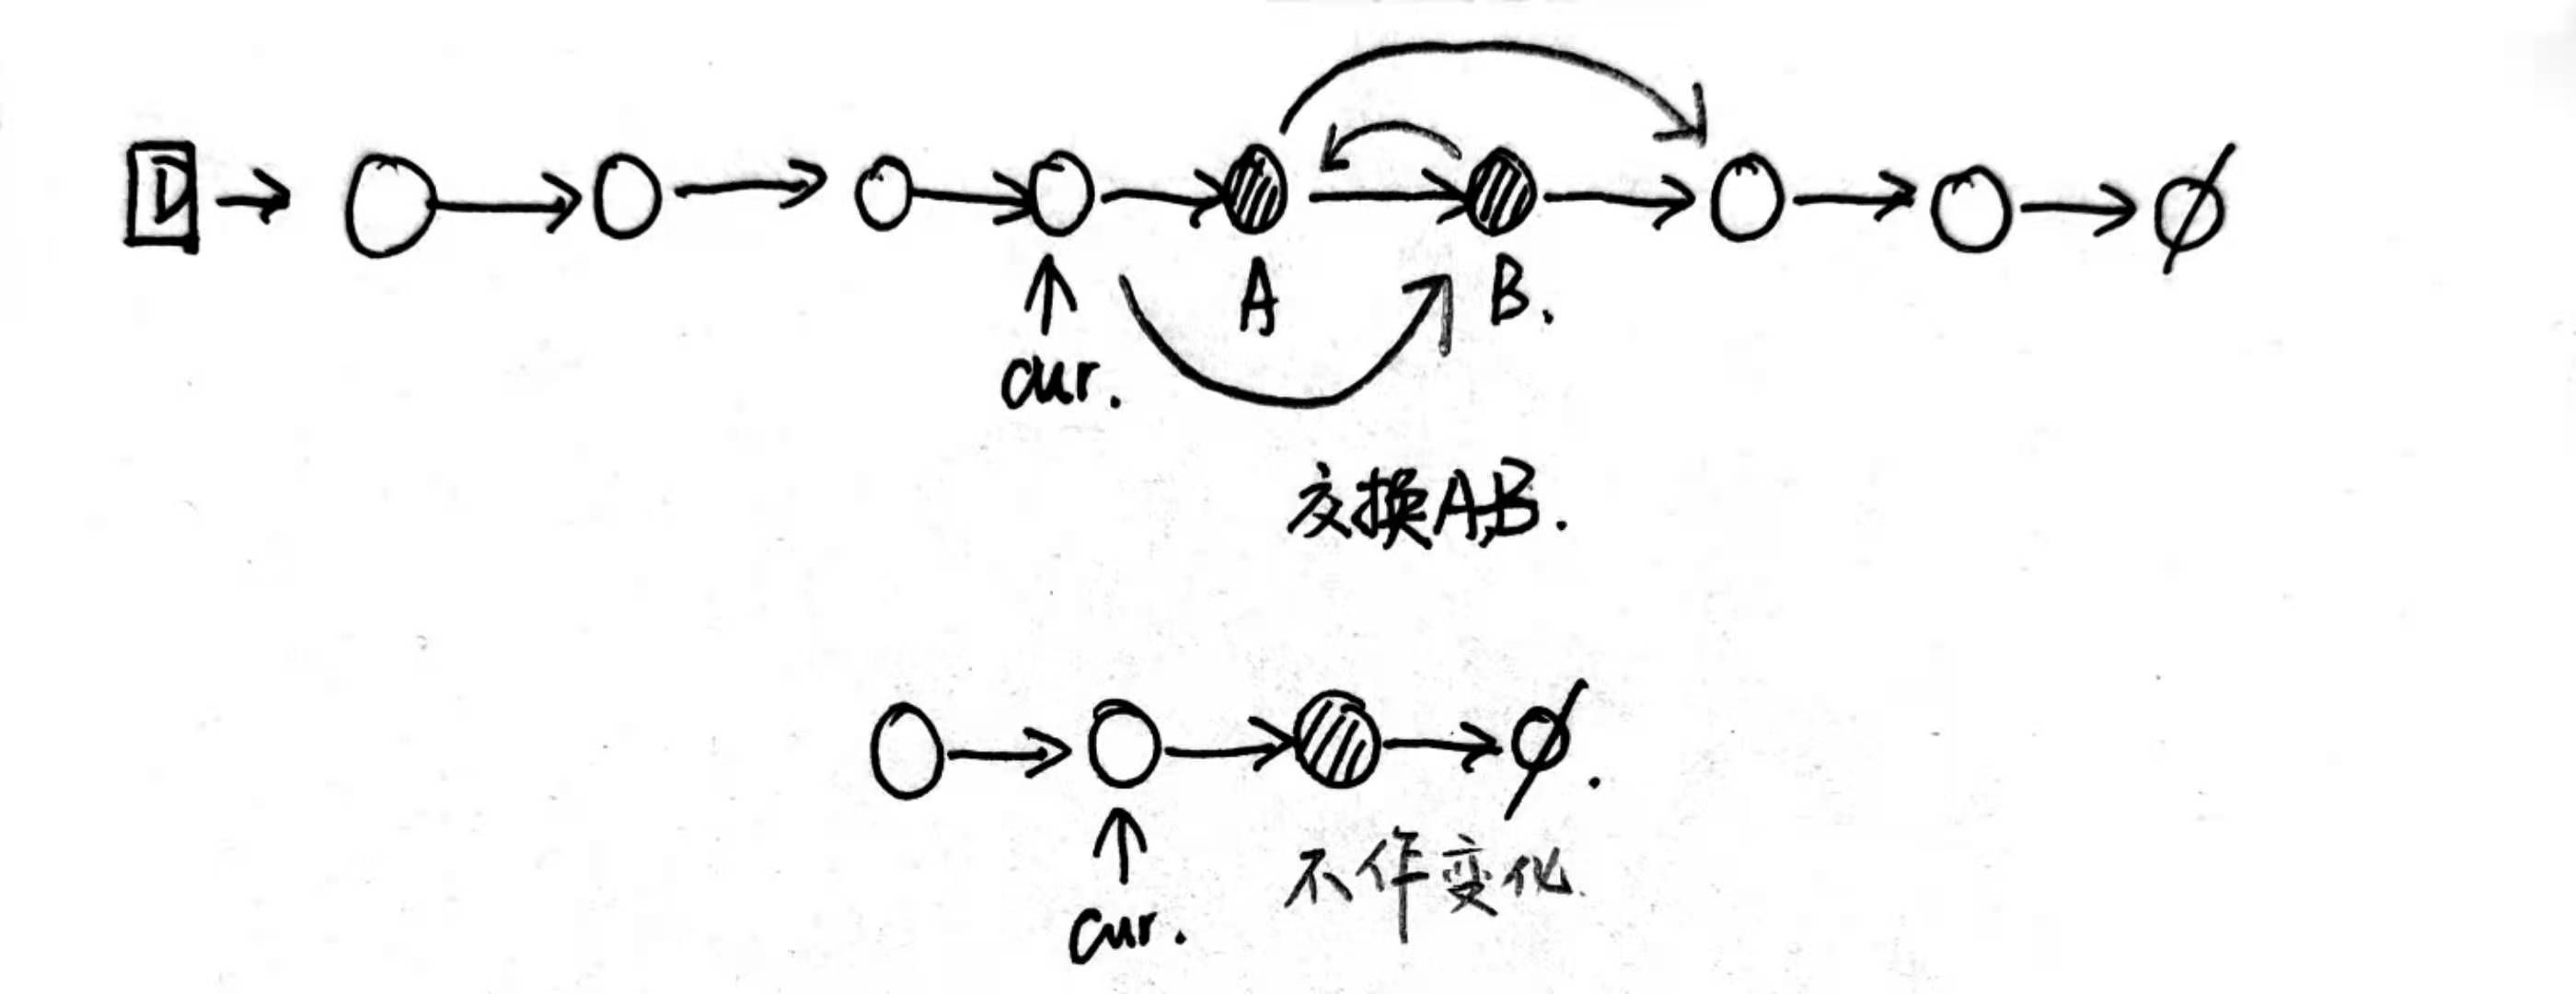 D
A
B.
cur.
交换A,B.
cur.
不作变化.